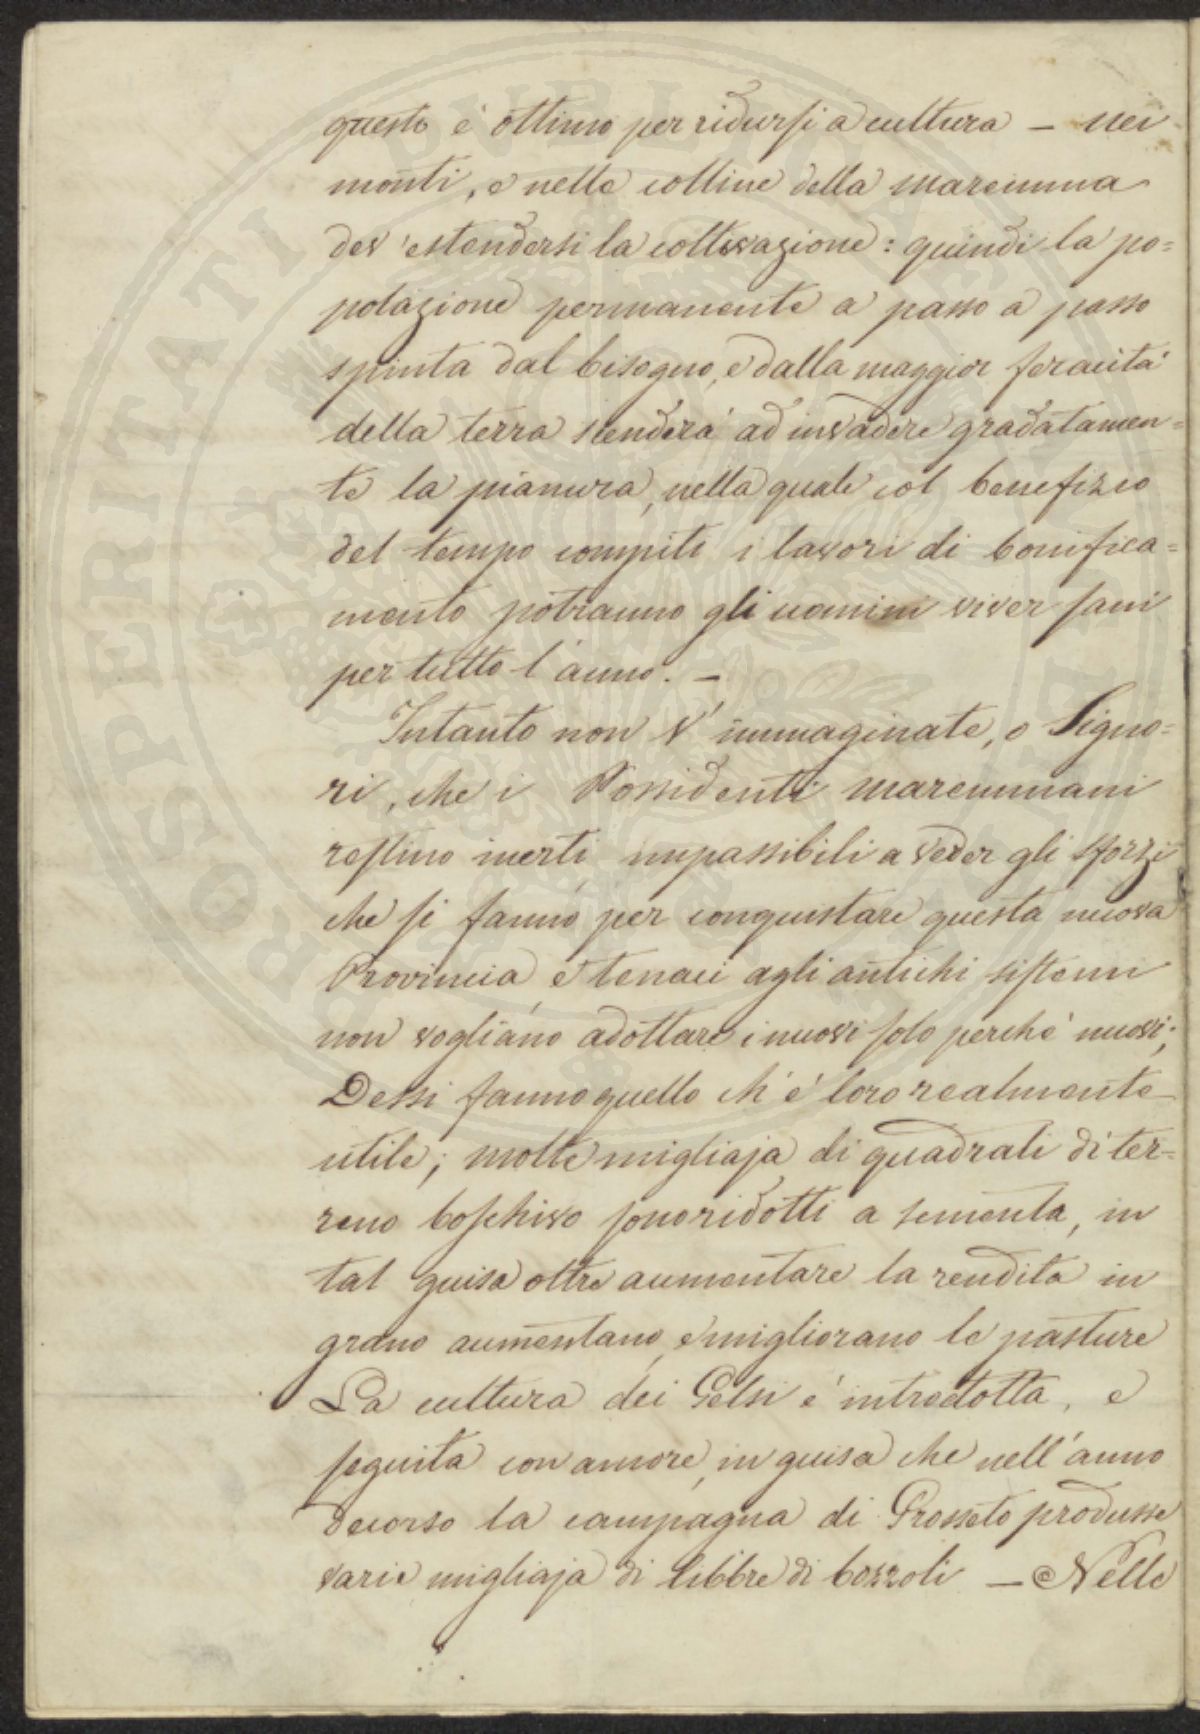 questo è ottimo per ridursi a cultura – nei
monti, e nelle colline della maremma
dev'estendersi la coltivazione: quindi la po=
polazione permanente a passo a passo
spinta dal bisogno, e dalla maggior feracità
della terra stenderà ad invadere gradatamen=
te la pianura, nella quale col benefizio
del tempo compiti i lavori di bonifica=
mento potranno gli uomini viver sani
per tutto l'anno. –
Intanto non v'immaginate, o Signo=
ri, che i Possidenti maremmani
restino inerti, impassibili a veder gli sforzi
che si fanno per conquistare questa nuova
Provincia, e tenaci agli antichi sistemi
non vogliano adottare i nuovi solo perché nuovi;
Dessi fanno quello ch'è loro realmente
utile; molte migliaja di quadrati di ter=
reno boschivo sono ridotti a sementa, in
tal guisa oltre aumentare la rendita in
grano aumentano, e migliorano le pasture
La cultura dei Gelsi è introdotta, e
seguita con amore, in guisa che nell'anno
decorso la campagna di Grosseto produsse
varie migliaja di libbre di bozzoli – Nelle
PROSPERITATI PVBLICAE